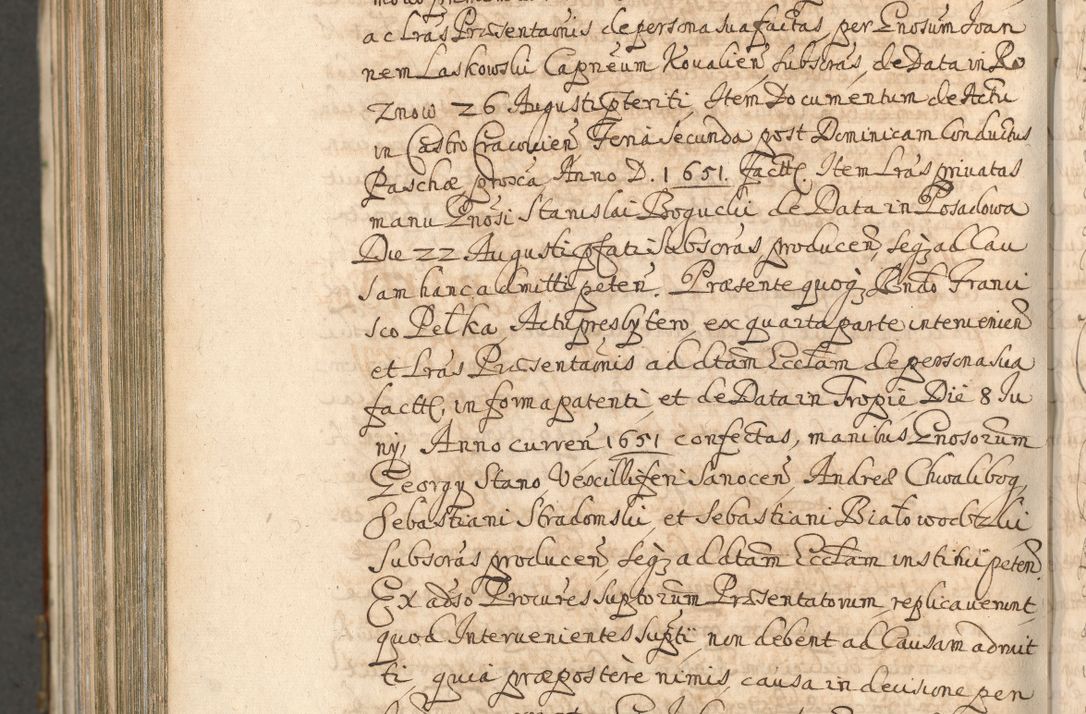 ac Lras Præsentaonis de persona sua factas per Gnosum Joan
nem Laskowski Capneum Kovalien subscras, de Data in Ro
znow 26 Augusti pteriti, Item Documentum de Actu
in Castro Cracovien Feria secunda post Dominicam Conductus
Paschæ proxa Anno D. 1651. factt, Item Lras privatas
manu Gnosi Stanislai Bogucki de Data in Posadowa
Die 22 Augusti pfati subscras producen, seqz ad Cau
sam hanc admitti peten. Præsente quoqz Bndo Franci
sco Pełka Actu presbytero, ex quarta parte intervenien
et Lras Præsentaonis ad dtam Ecclam de persona sua
factt, in forma patenti et de Data in Tropie Die 8 Ju
nij, Anno curren 1651 confectas, manibus Gnosorum
Georgy Stano Vexilliferi Sanocen, Andreæ Chwalibog,
Sebastiani Stradomski, et Sebastiani Białowodzki
Subscras producen, seqz ad dtam Ecclam institui peten.
Ex adso Procures suptorum Præsentatorum replicaverunt
quod Intervenientes supti non debent ad Causam admit
ti quia præpostere nimis, causa in decisione pen